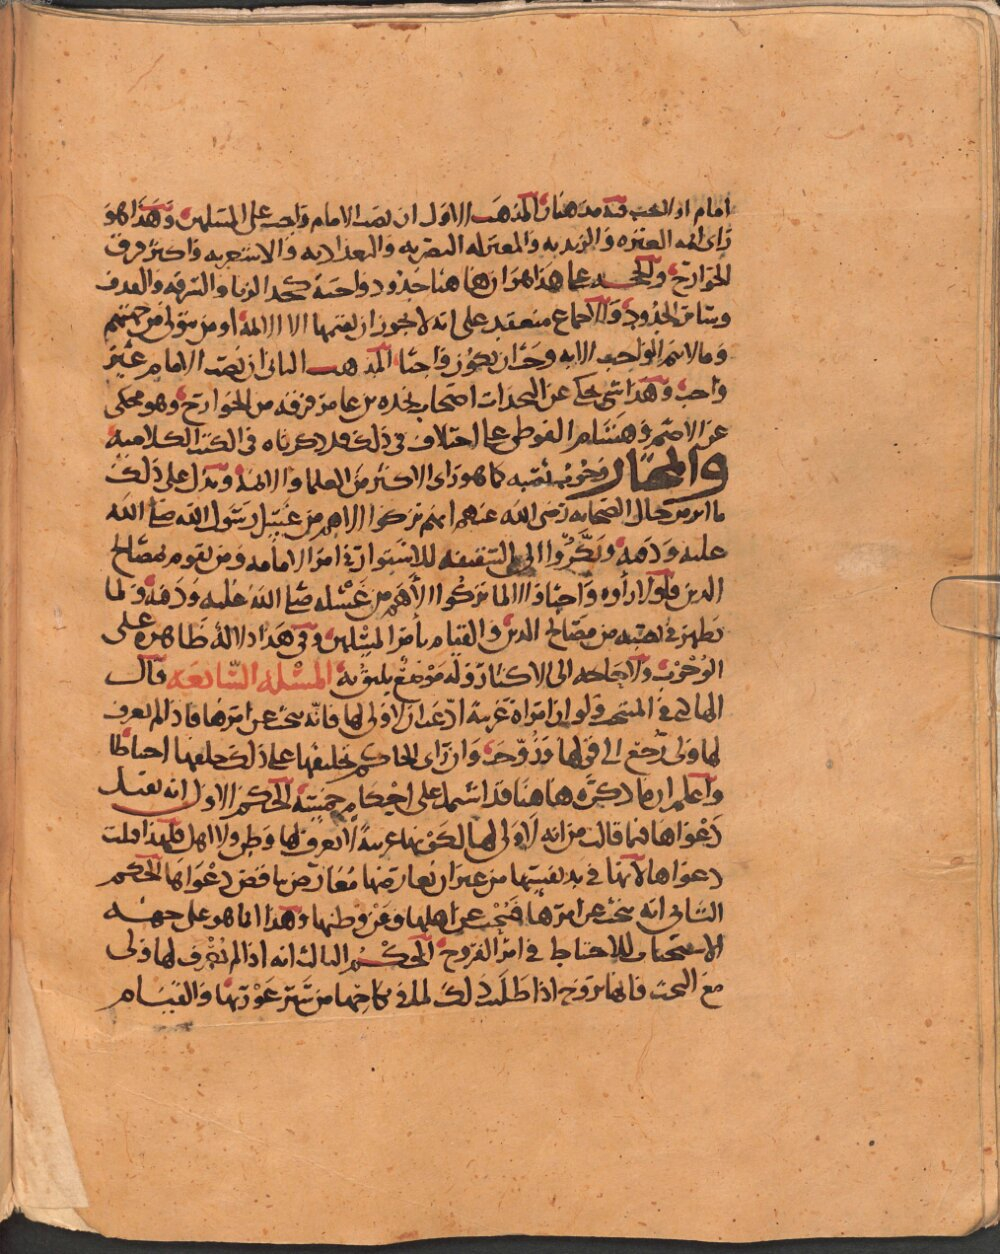 امام او لا يجب فيه مذهبان المذهب الاول ان نصب الامام واجب على المسلمين وهذا هو
راى ائمه العتره والزيديه والمعتزله البصريه والبغداديه والاشعريه واكثر فرق
الخوارج والحجه على هذا هو ان هاهنا حدود واجبة كحد الزنا والسرقه والقذف
وسائر الحدود والاجماع منعقد على انه لا يجوز ان يقيمها الا الائمه او من يتولى من جهتهم
وما لا يتم الواجب الا به وجب ان يكون واجبا المذهب الثانى ان نصب الامام غير
واجب وهذا شى يحكى عن النجدات اصحاب نجده بن عامر فرقه من الخوارج وهو محكى
عن الاصم وهشام الفوطى على اختلاف فى ذلك قد ذكرناه فى الكتب الكلاميه
والمختار وجوب نصبه كما هو راى الاكثر من العلما والائمه ويدل على ذلك
ما اثر من حال الصحابه رضى الله عنهم انهم تركوا الاهم من غسل رسول الله صلى الله
عليه ودفنه وبكروا الى السقيفه للاشتوار فى امر الامامه ومن يقوم بمصالح
الدين فلولا راوه واجبا لما تركوا الاهم من غسله صلى الله عليه ودفنه ولما
يظهر فى نصبه من مصالح الدين والقيام بامر المسلمين وفى هذا دلالة ظاهره على
الوجوب ولا حاجه الى الاكثار وله موضع يليق به المسئله السابعه قال
الهادى فى المنتخب ولو ان امراة غريبة ادعت ان لا ولى لها فانه يبحث عن امرها فاذا لم يعرف
لها ولى رجع الى قولها وزوجت وان راى الحاكم تحليفها على ذلك حلفها احتياطا
واعلم ان ما ذكره هاهنا قد اشتمل على احكام خمسة الحكم الاول انه تقبل
دعواها فيما قالت من انه لا ولى لها لكونها غريبة لا يعرف لها وطن ولا اهل فلهذا قبلت
دعواها لانها فى يد نفسها من غير ان يعارضها معارض يناقض دعواها الحكم
الثانى انه يبحث عن امرها فيبحث عن اهلها وعن وطنها وهذا انما هو على جهه
الاستحباب للاحتياط فى امر الفروج الحكم الثالث انه اذا لم يعرف لها ولى
مع البحث فانها تزوج اذا طلبت ذلك لما فى نكاحها من ستر عورتها والقيام